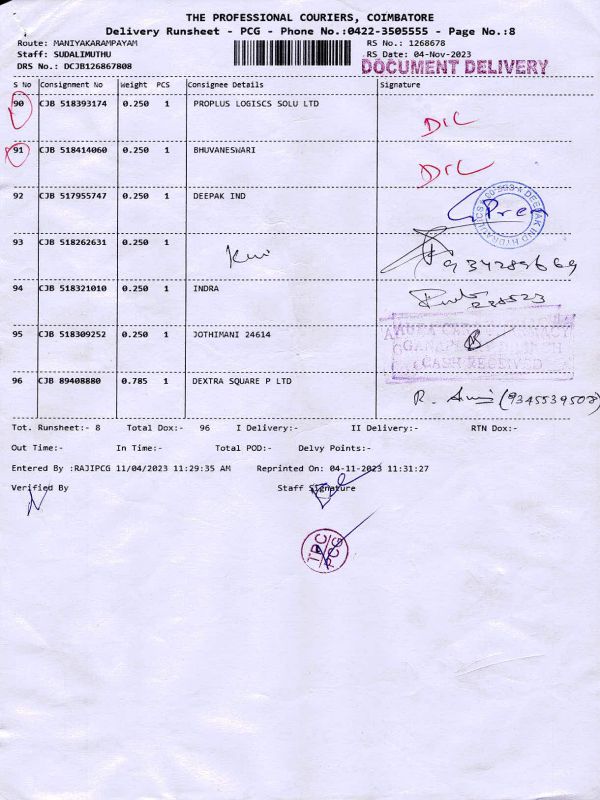 THE PROFESSIONAL COURIERS, COIMBATORE
Delivery Runsheet - PCG - Phone No.:0422-3505555 - Page No.:8
Route: MANIYAKARAMPAYAM RS No.: 1268678
Staff: SUDALIMUTHU RS Date: 04-Nov-2023
DRS No.: DCJB126867808 DOCUMENT DELIVERY
S No Consignment No Weight PCS Consignee Details Signature
90 CJB 518393174 0.250 1 PROPLUS LOGISCS SOLU LTD
D/L
91 CJB 518414060 0.250 1 BHUVANESWARI
D/L
92 CJB 517955747 0.250 1 DEEPAK IND
93 CJB 518262631 0.250 1
94 CJB 518321010 0.250 1 INDRA
95 CJB 518309252 0.250 1 JOTHIMANI 24614
CASH RECEIVED
96 CJB 89408880 0.785 1 DEXTRA SQUARE P LTD
Tot. Runsheet:- 8 Total Dox:- 96 I Delivery:- II Delivery:- RTN Dox:-
Out Time:- In Time:- Total POD:- Delvy Points:-
Entered By :RAJIPCG 11/04/2023 11:29:35 AM Reprinted On: 04-11-2023 11:31:27
Verified By Staff Signature
TPC
PCG